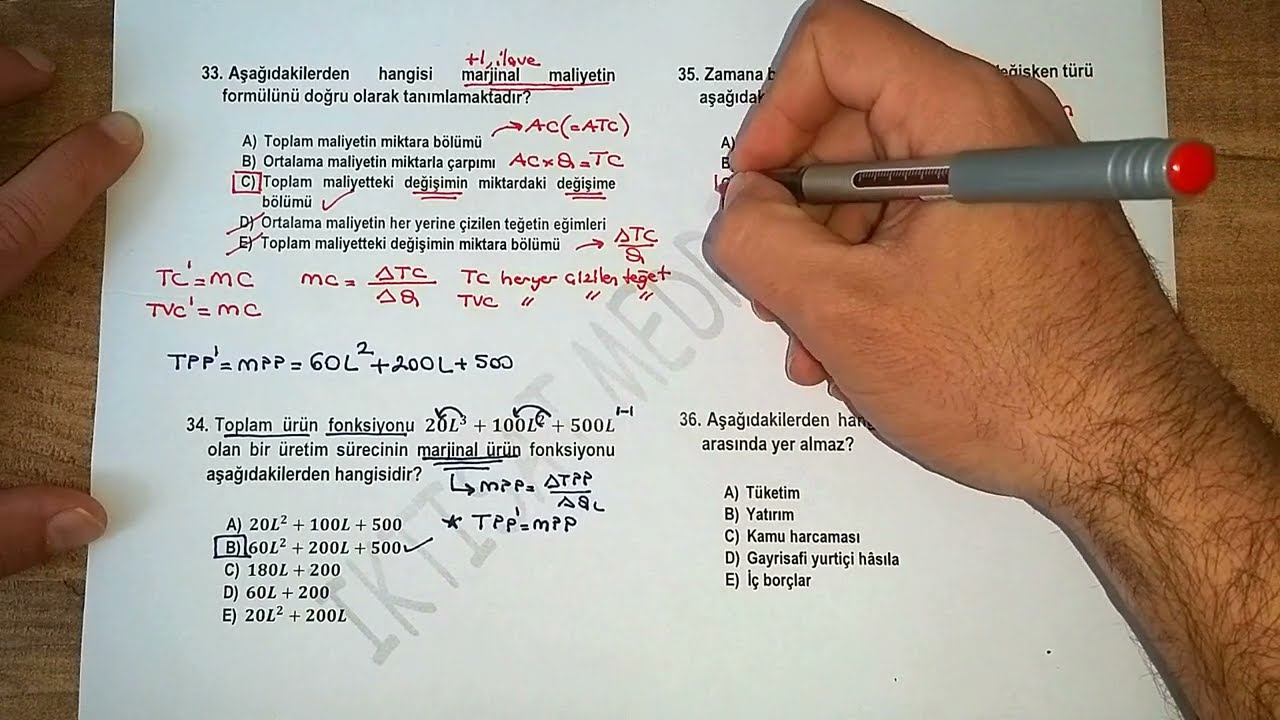 +1, ilave
33. Aşağıdakilerden hangisi marjinal maliyetin
formülünü doğru olarak tanımlamaktadır?
A) Toplam maliyetin miktara bölümü →AC(=ATC)
B) Ortalama maliyetin miktarla çarpımı AC×Q=TC
C) Toplam maliyetteki değişimin miktardaki değişime
bölümü ✓
D) Ortalama maliyetin her yerine çizilen teğetin eğimleri
E) Toplam maliyetteki değişimin miktara bölümü → ΔTC/Q
TC'=MC MC = ΔTC/ΔQ TC heryer çizilen teğet
TVC'=MC TVC " " "
TPP'=MPP=60L²+200L+500
34. Toplam ürün fonksiyonu 20L³ + 100L² + 500L¹⁻¹
olan bir üretim sürecinin marjinal ürün fonksiyonu
aşağıdakilerden hangisidir?
↳MPP=ΔTPP/ΔQL
* TPP'=MPP
A) 20L² + 100L + 500
B) 60L² + 200L + 500 ✓
C) 180L + 200
D) 60L + 200
E) 20L² + 200L
35. Zamana değişken türü
A)
36. Aşağıdakilerden
arasında yer almaz?
A) Tüketim
B) Yatırım
C) Kamu harcaması
D) Gayrisafi yurtiçi hâsıla
E) İç borçlar